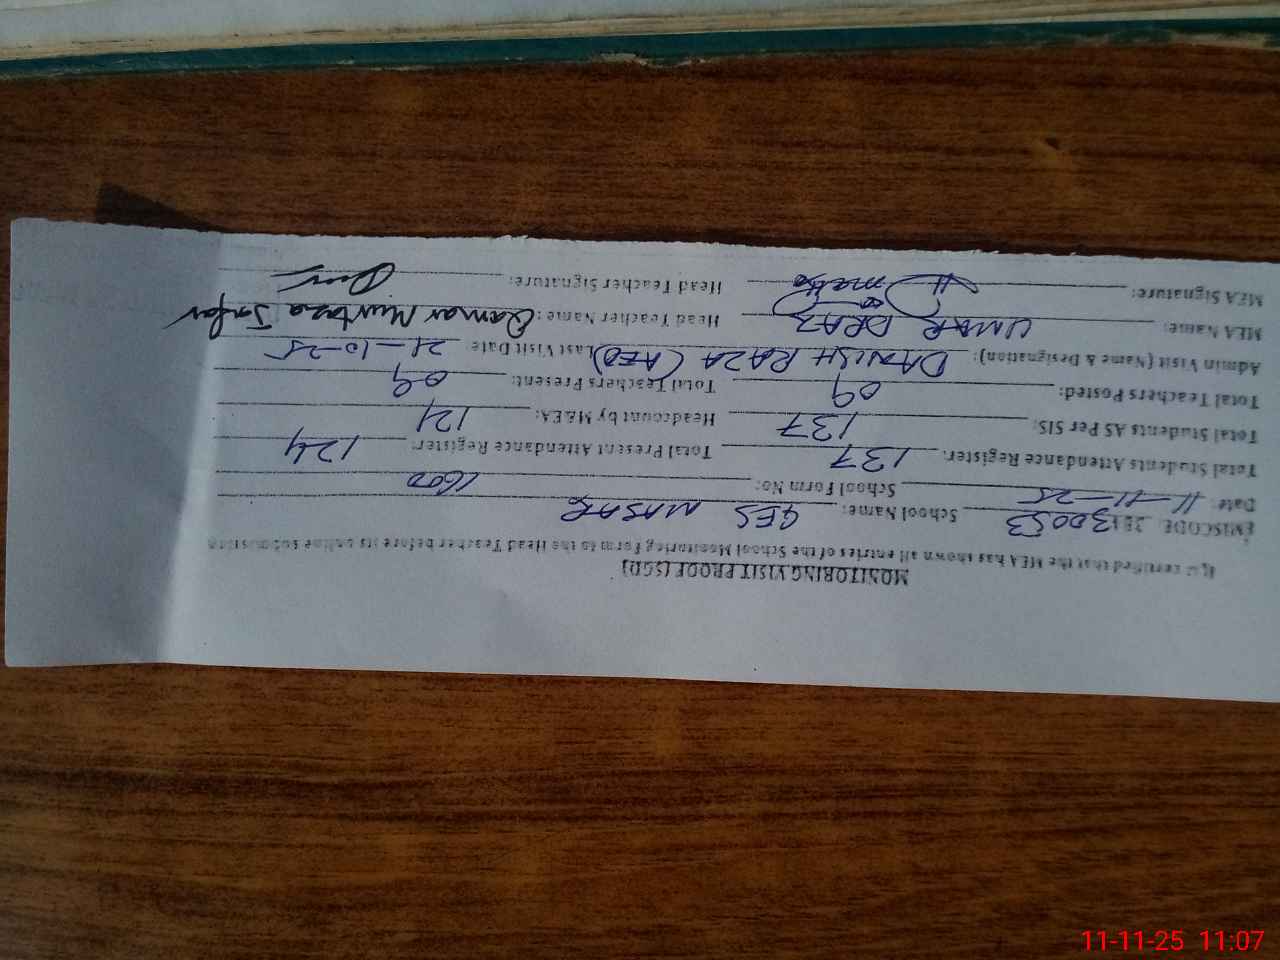 MONITORING VISIT PROOF (SGD)
It is certified that the MEA has shown all entries of the School Monitoring Form to the Head Teacher before its online submission
EMISCODE School Name: GES
Date: 11-11-25 School Form No: 1600
Total Students Attendance Register: 137 Total Present Attendance Register: 124
Total Students AS Per SIS: 137 Headcount by M&EA: 121
Total Teachers Posted: 09 Total Teachers Present: 09
Admin Visit (Name & Designation): DANISH RAZA (AEO) Last Visit Date: 21-10-25
MEA Name: UMAR DRAZ Head Teacher Name: Qamar Murtaza Jafar
MEA Signature: Head Teacher Signature:
11-11-25 11:07